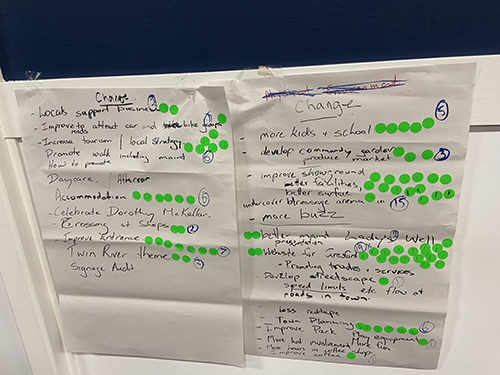 Change
- Locals support business
- Improve to attract car and bike groups
roads
- Increase tourism / local strategy
Promote walk including maint
how to promote
Daycare After car
Accommodation 6
- Celebrate Dorothy McKellar
Xrossing at shops 2
Improve Entrance 7
Twin River theme 3
Signage Audit
Change
5
- more kids + school
- develop community garden 3
produce market
- improve showground
facilities,
better surface
undercover arena 15
- more buzz
better maint Lady's Well
presentation
Website for
- Promoting trades + services
- Develop streetscape
speed limits etc flow of
roads in town.
- less redtape
- Town Planning
Improve Park Play equipment 6
- More involvement More fun
- More hours in coffee shop
Improve coffee